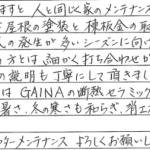 ますと人と同じく家のメンテナンス
屋根の塗装と棟板金の取
の発生が多いシーズンに向け
方とは、細かく打ち合わせが
の説明も丁寧にして頂きまし
はGAINAの断熱セラミック
暑さ、冬の寒さも和らぎ、省エネ
ターメンテナンス よろしくお願いし